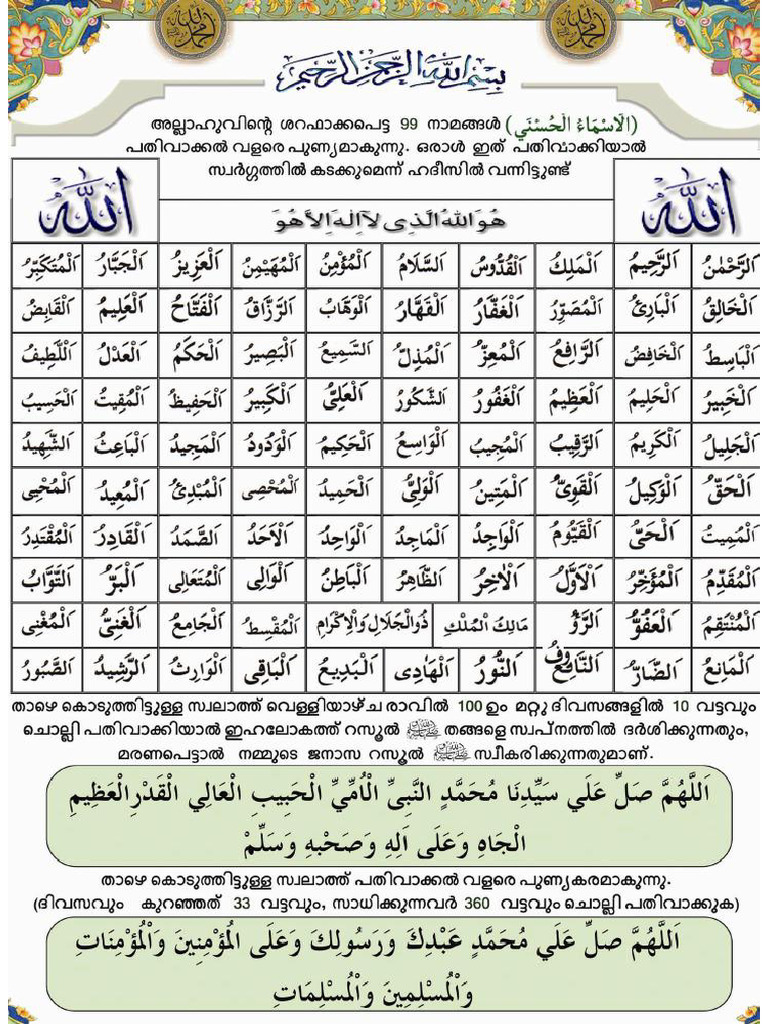 بِسْمِ اللهِ الرَّحْمٰنِ الرَّحِيْمِ
അല്ലാഹുവിന്റെ ശറഫാക്കപെട്ട 99 നാമങ്ങൾ (اَلْاَسْمَاءُ الْحُسْنَي)
പതിവാക്കൽ വളരെ പുണ്യമാകുന്നു. ഒരാൾ ഇത് പതിവാക്കിയാൽ
സ്വർഗ്ഗത്തിൽ കടക്കുമെന്ന് ഹദീസിൽ വന്നിട്ടുണ്ട്
الله هُوَ اللهُ الَّذِي لَا اِلٰهَ اِلَّا هُوَ الله
اَلرَّحْمٰنُ اَلرَّحِيمُ اَلْمَلِكُ اَلْقُدُّوسُ اَلسَّلَامُ اَلْمُؤْمِنُ اَلْمُهَيْمِنُ اَلْعَزِيزُ اَلْجَبَّارُ اَلْمُتَكَبِّرُ
اَلْخَالِقُ اَلْبَارِئُ اَلْمُصَوِّرُ اَلْغَفَّارُ اَلْقَهَّارُ اَلْوَهَّابُ اَلرَّزَّاقُ اَلْفَتَّاحُ اَلْعَلِيمُ اَلْقَابِضُ
اَلْبَاسِطُ اَلْخَافِضُ اَلرَّافِعُ اَلْمُعِزُّ اَلْمُذِلُّ اَلسَّمِيعُ اَلْبَصِيرُ اَلْحَكَمُ اَلْعَدْلُ اَللَّطِيفُ
اَلْخَبِيرُ اَلْحَلِيمُ اَلْعَظِيمُ اَلْغَفُورُ اَلشَّكُورُ اَلْعَلِيُّ اَلْكَبِيرُ اَلْحَفِيظُ اَلْمُقِيتُ اَلْحَسِيبُ
اَلْجَلِيلُ اَلْكَرِيمُ اَلرَّقِيبُ اَلْمُجِيبُ اَلْوَاسِعُ اَلْحَكِيمُ اَلْوَدُودُ اَلْمَجِيدُ اَلْبَاعِثُ اَلشَّهِيدُ
اَلْحَقُّ اَلْوَكِيلُ اَلْقَوِيُّ اَلْمَتِينُ اَلْوَلِيُّ اَلْحَمِيدُ اَلْمُحْصِي اَلْمُبْدِئُ اَلْمُعِيدُ اَلْمُحْيِي
اَلْمُمِيتُ اَلْحَيُّ اَلْقَيُّومُ اَلْوَاجِدُ اَلْمَاجِدُ اَلْوَاحِدُ اَلْاَحَدُ اَلصَّمَدُ اَلْقَادِرُ اَلْمُقْتَدِرُ
اَلْمُقَدِّمُ اَلْمُؤَخِّرُ اَلْاَوَّلُ اَلْاٰخِرُ اَلظَّاهِرُ اَلْبَاطِنُ اَلْوَالِي اَلْمُتَعَالِي اَلْبَرُّ اَلتَّوَّابُ
اَلْمُنْتَقِمُ اَلْعَفُوُّ اَلرَّؤُفُ مَالِكَ الْمُلْكِ ذُوالْجَلَالِ وَالْاِكْرَامِ اَلْمُقْسِطُ اَلْجَامِعُ اَلْغَنِيُّ اَلْمُغْنِي
اَلْمَانِعُ اَلضَّارُّ اَلنَّافِعُ اَلنُّورُ اَلْهَادِي اَلْبَدِيعُ اَلْبَاقِي اَلْوَارِثُ اَلرَّشِيدُ اَلصَّبُورُ
താഴെ കൊടുത്തിട്ടുള്ള സ്വലാത്ത് വെള്ളിയാഴ്ച രാവിൽ 100 ഉം മറ്റു ദിവസങ്ങളിൽ 10 വട്ടവും
ചൊല്ലി പതിവാക്കിയാൽ ഇഹലോകത്ത് റസൂൽ ﷺ തങ്ങളെ സ്വപ്നത്തിൽ ദർശിക്കുന്നതും,
മരണപെട്ടാൽ നമ്മുടെ ജനാസ റസൂൽ ﷺ സ്വീകരിക്കുന്നതുമാണ്.
اَللَّهُمَّ صَلِّ عَلَي سَيِّدِنَا مُحَمَّدٍ النَّبِيِّ الْاُمِّيِّ الْحَبِيبِ الْعَالِي الْقَدْرِ الْعَظِيمِ
الْجَاهِ وَعَلَى اَلِهِ وَصَحْبِهِ وَسَلِّمْ
താഴെ കൊടുത്തിട്ടുള്ള സ്വലാത്ത് പതിവാക്കൽ വളരെ പുണ്യകരമാകുന്നു.
(ദിവസവും കുറഞ്ഞത് 33 വട്ടവും, സാധിക്കുന്നവർ 360 വട്ടവും ചൊല്ലി പതിവാക്കുക)
اَللَّهُمَّ صَلِّ عَلَي مُحَمَّدٍ عَبْدِكَ وَرَسُولِكَ وَعَلَى الْمُؤْمِنِينَ وَالْمُؤْمِنَاتِ
وَالْمُسْلِمِينَ وَالْمُسْلِمَاتِ